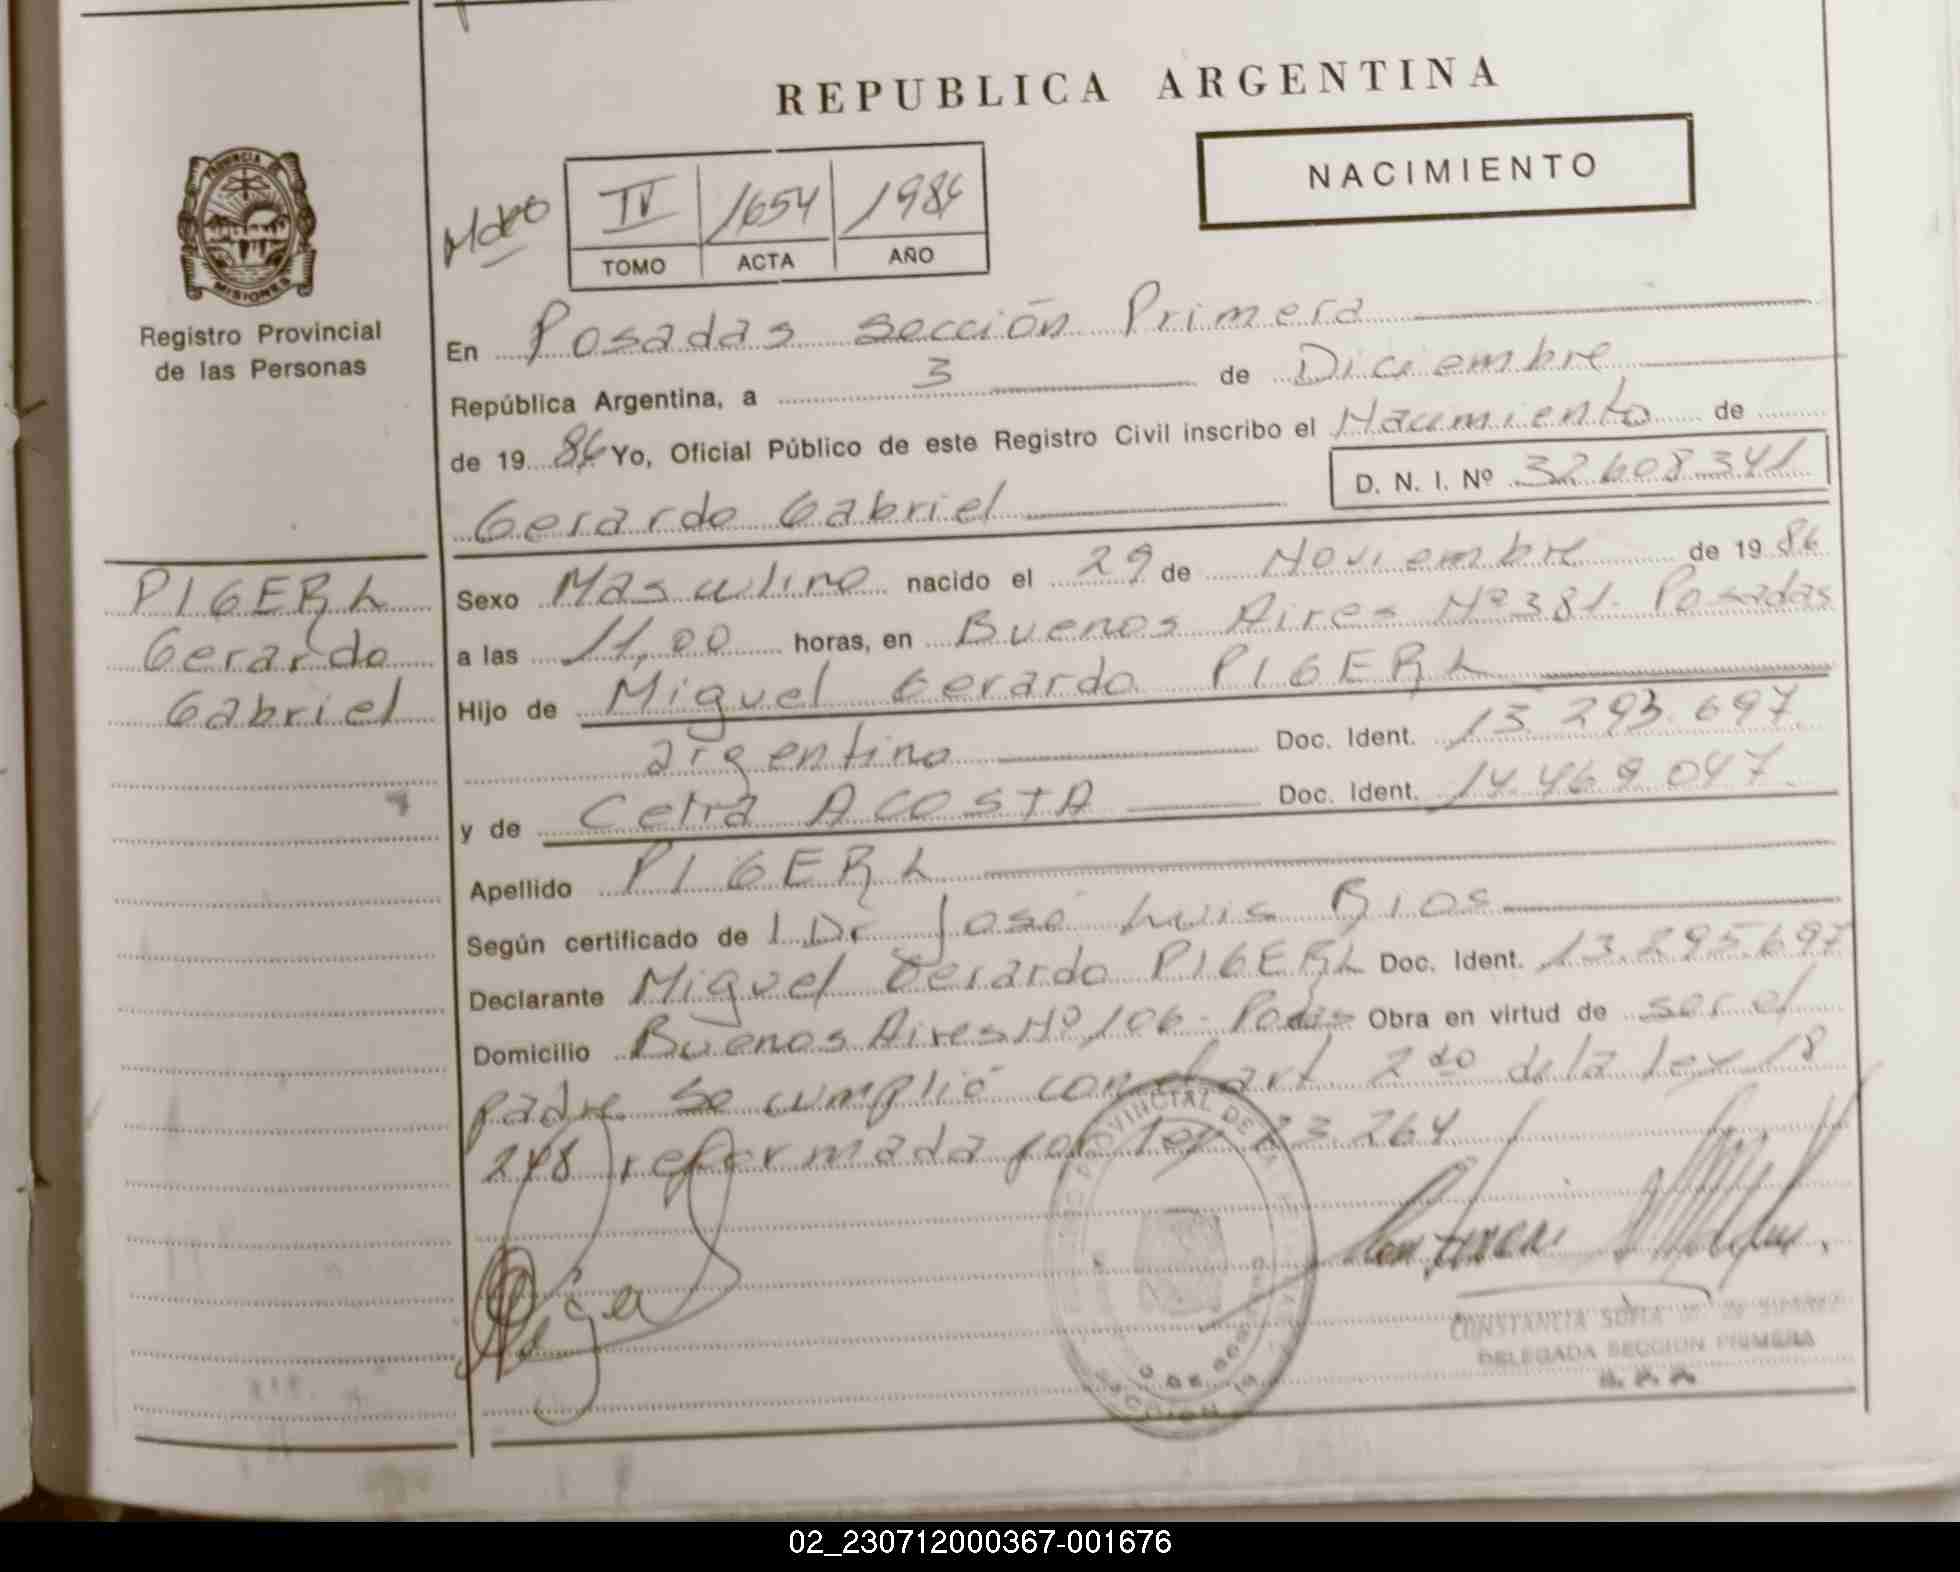 REPUBLICA ARGENTINA
NACIMIENTO
IV 1654 1986
TOMO ACTA AÑO
PROVINCIA DE
MISIONES
Registro Provincial
de las Personas
En Posadas Sección Primera
República Argentina, a 3 de Diciembre
de 19 86 Yo, Oficial Público de este Registro Civil inscribo el Nacimiento de
D. N. I. Nº 32.608.341
Gerardo Gabriel
PIGERL
Gerardo
Gabriel
Sexo Masculino nacido el 29 de Noviembre de 19 86
a las 11,00 horas, en Buenos Aires Nº 381. Posadas
Hijo de Miguel Gerardo PIGERL
argentino Doc. Ident. 13.293.697
y de Celia ACOSTA Doc. Ident. 14.469.047
Apellido PIGERL
Según certificado de l Dr José Luis Rios
Declarante Miguel Gerardo PIGERL Doc. Ident. 13.295.697
Domicilio Buenos Aires Nº 106 - Obra en virtud de ser el
padre Se cumplió con el art 2do de la ley 18
248 reformada por ley 23.264
CONSTANCIA SOFIA
DELEGADA SECCION PRIMERA
02_230712000367-001676